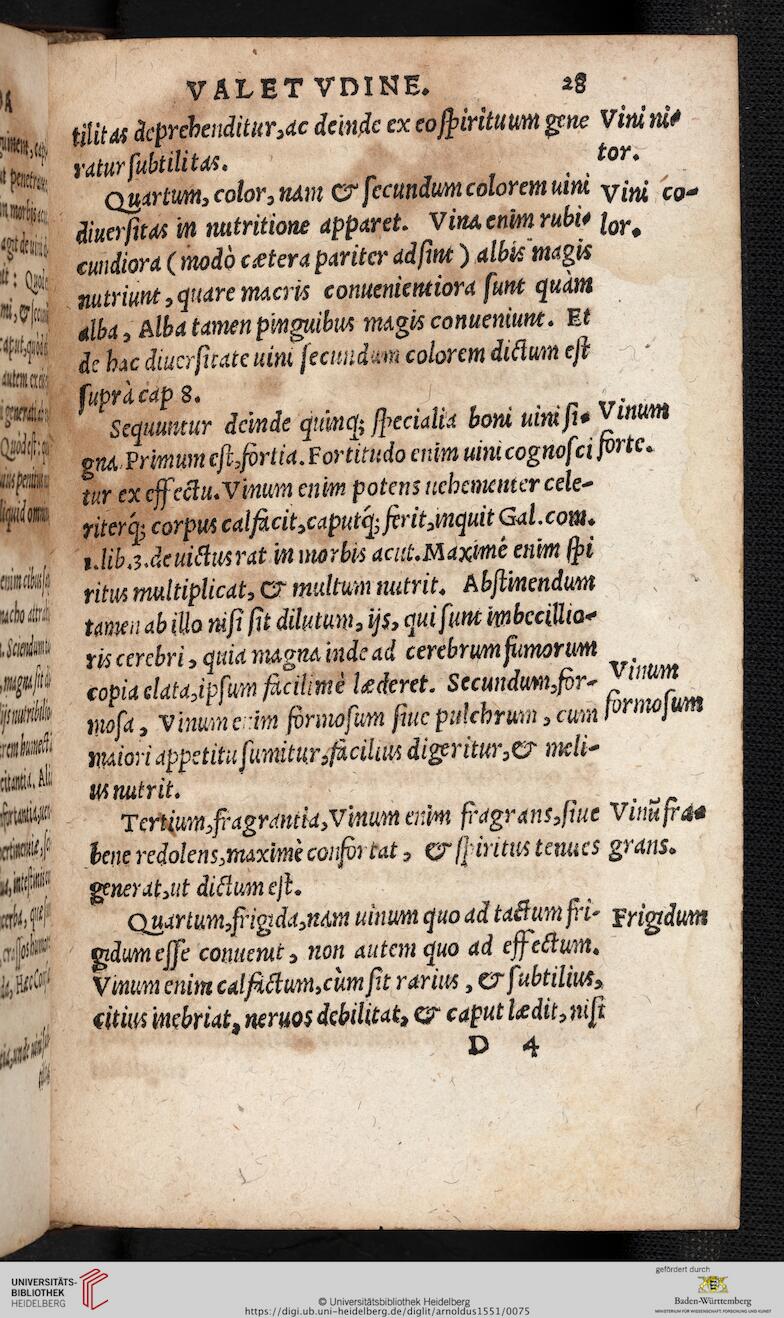 VALETVDINE. 28
tilitas deprehenditur, ac deinde ex eo spirituum gene
ratur subtilitas.
Vini ni-
tor.
Quartum, color, nam & secundum colorem uini
Vini co-
diuersitas in nutritione apparet. Vina enim rubi-
lor.
cundiora (modò cætera pariter adsint) albis magis
nutriunt, quare macris conuenientiora sunt quàm
alba, Alba tamen pinguibus magis conueniunt. Et
de hac diuersitate uini secundum colorem dictum est
suprà cap 8.
Sequuntur deinde quinq; specialia boni uini si-
Vinum
gna. Primum est, fortia. Fortitudo enim uini cognosci
forte.
tur ex effectu. Vinum enim potens uehementer cele-
riterq́; corpus calfacit, caputq́; ferit, inquit Gal. com.
1. lib. 3. de uictus rat in morbis acut. Maximé enim spi
ritus multiplicat, & multum nutrit. Abstinendum
tamen ab illo nisi sit dilutum, ijs, qui sunt imbecillio-
ris cerebri, quia magna inde ad cerebrum fumorum
copia elata, ipsum facilimè læderet. Secundum, for-
Vinum
mosa, Vinum enim formosum siue pulchrum, cum
formosum
maiori appetitu sumitur, facilius digeritur, & meli-
us nutrit.
Tertium, fragrantia, Vinum enim fragrans, siue
Vinũ fra-
bene redolens, maximè confortat, & spiritus tenues
grans.
generat, ut dictum est.
Quartum, frigida, nam uinum quo ad tactum fri-
Frigidum
gidum esse conuenit, non autem quo ad effectum.
Vinum enim calfactum, cùm sit rarius, & subtilius,
citius inebriat, neruos debilitat, & caput lædit, nisi
D 4
UNIVERSITÄTS-
BIBLIOTHEK
HEIDELBERG
© Universitätsbibliothek Heidelberg
https://digi.ub.uni-heidelberg.de/diglit/arnoldus1551/0075
gefördert durch
Baden-Württemberg
MINISTERIUM FÜR WISSENSCHAFT, FORSCHUNG UND KUNST